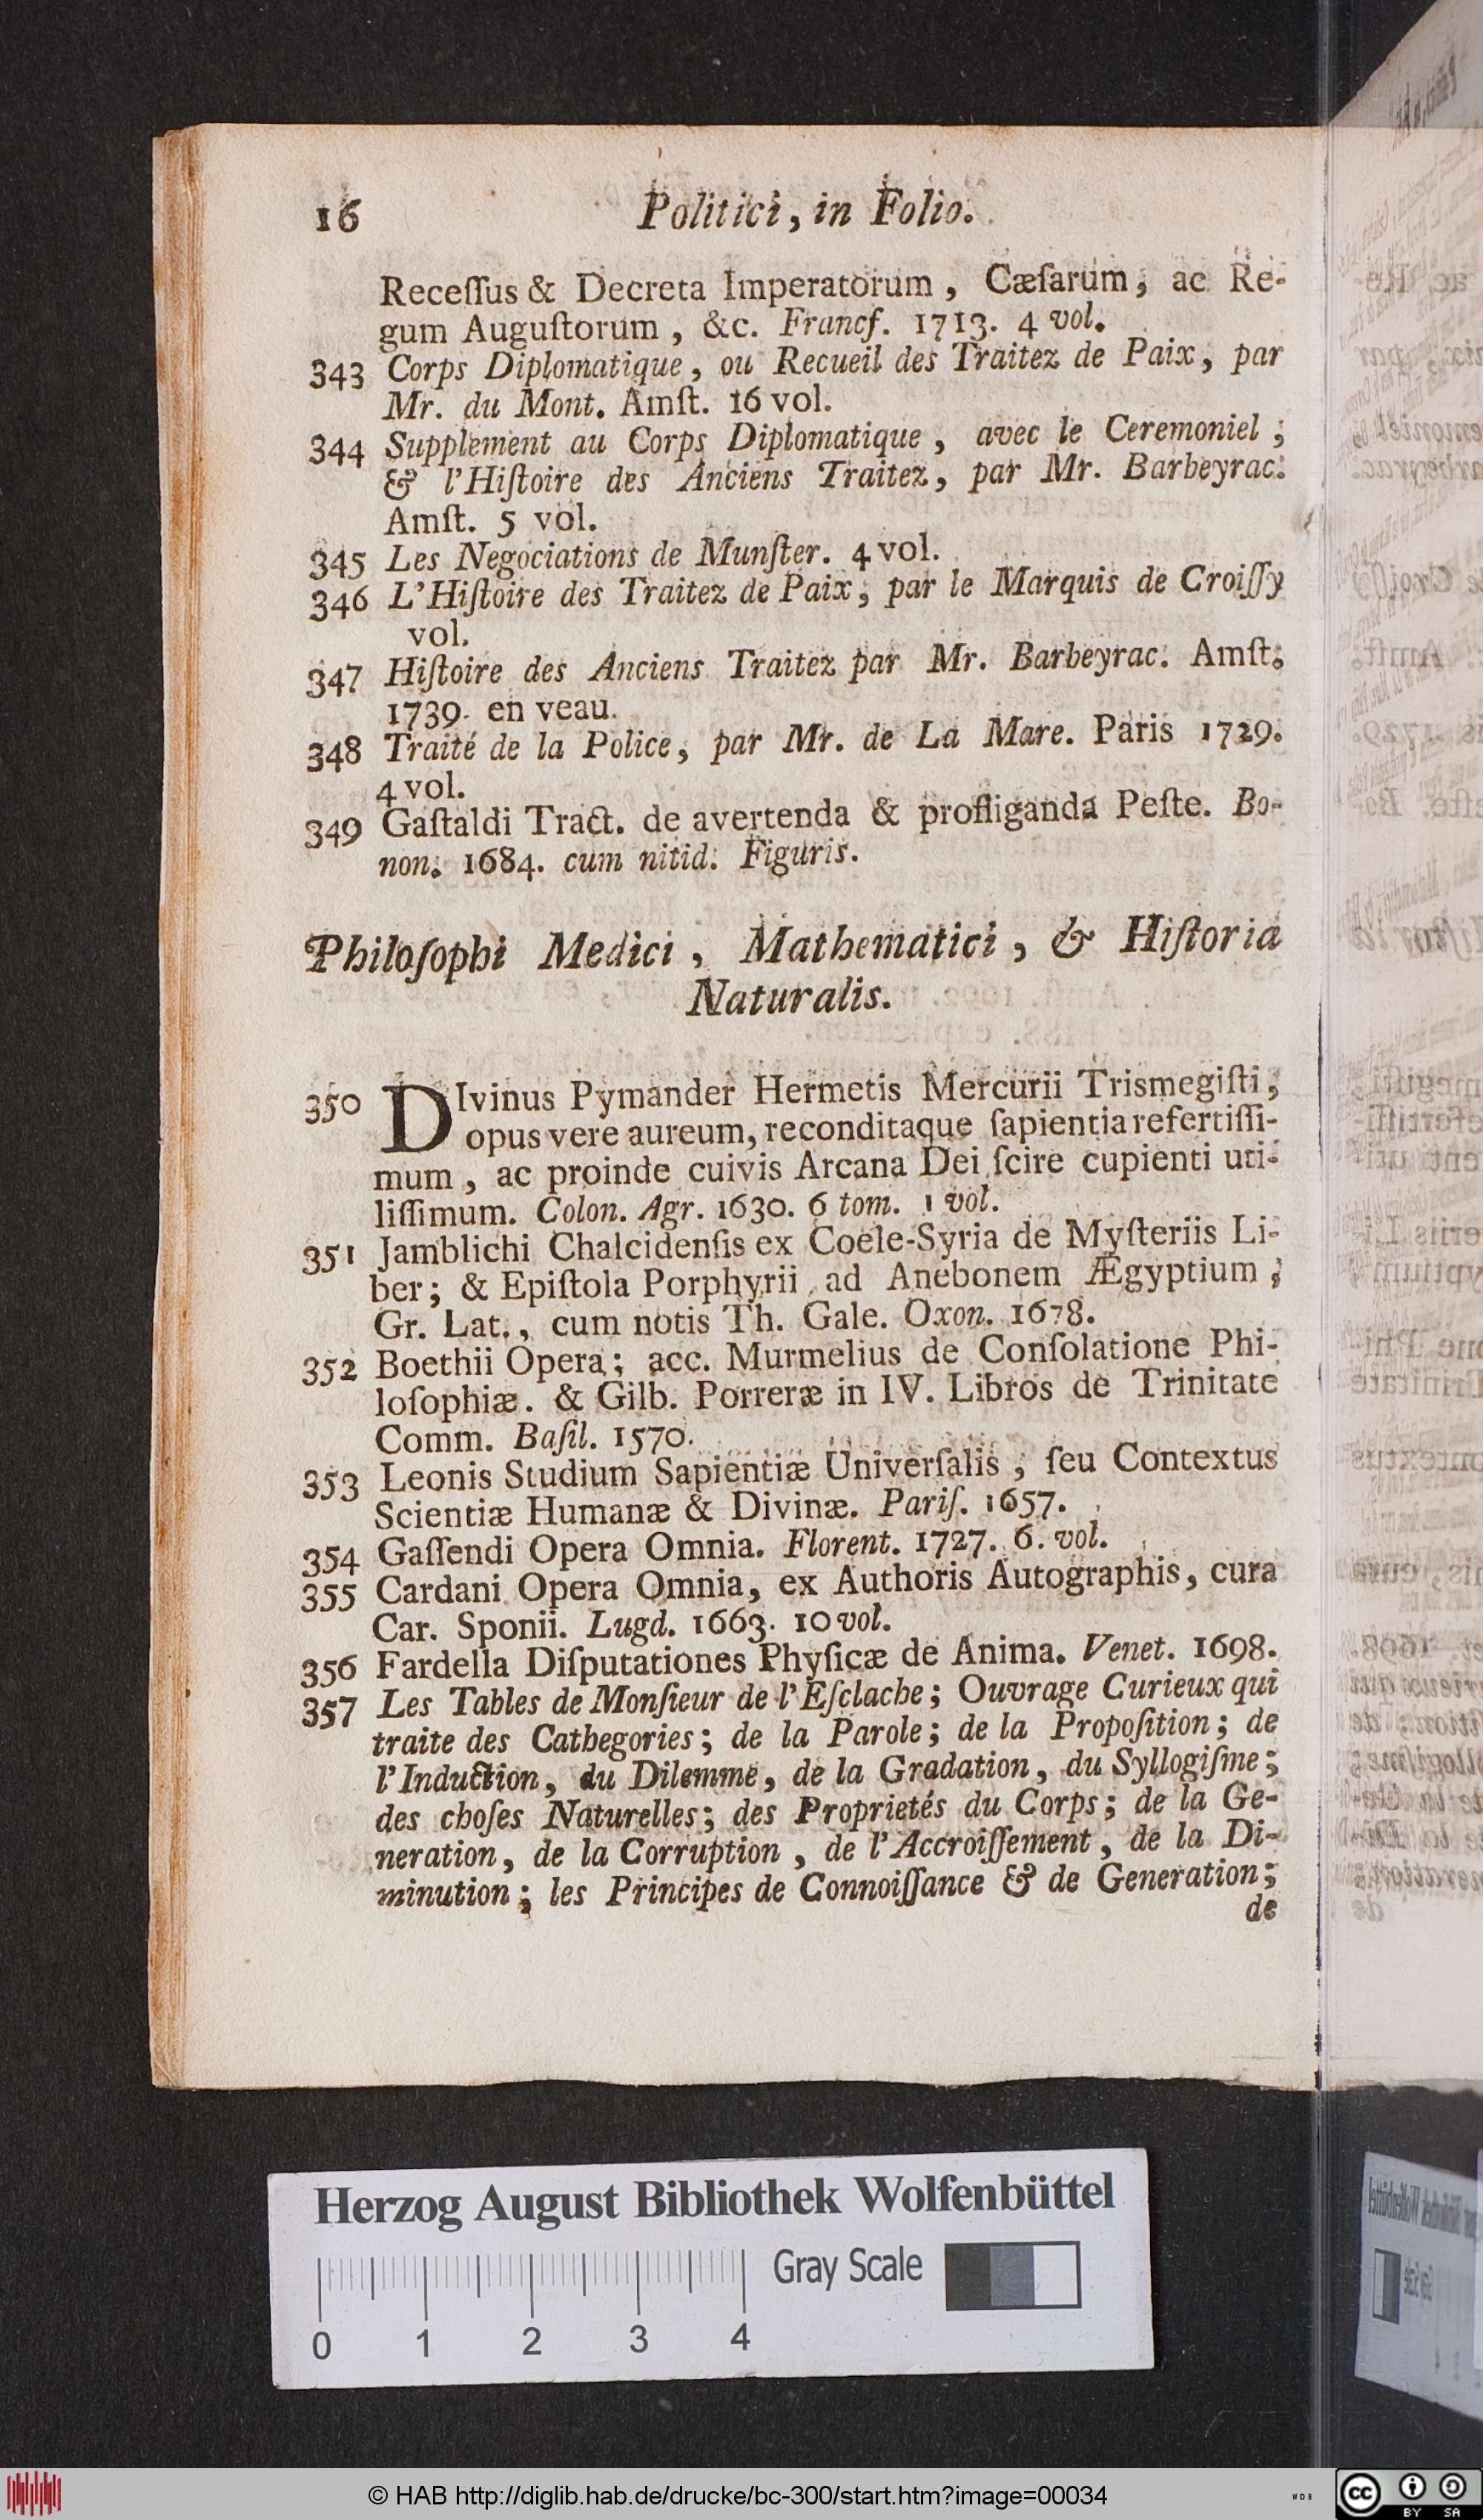 16
Politici, in Folio.
Receſſus & Decreta Imperatorum, Cæſarum, ac Re-
gum Auguſtorum, &c. Francf. 1713. 4 vol.
343 Corps Diplomatique, ou Recueil des Traitez de Paix, par
Mr. du Mont. Amſt. 16 vol.
344 Supplement au Corps Diplomatique, avec le Ceremoniel;
& l'Hiſtoire des Anciens Traitez, par Mr. Barbeyrac.
Amſt. 5 vol.
345 Les Negociations de Munſter. 4 vol.
346 L'Hiſtoire des Traitez de Paix, par le Marquis de Croiſſy
vol.
347 Hiſtoire des Anciens Traitez par Mr. Barbeyrac. Amſt.
1739. en veau.
348 Traité de la Police, par Mr. de La Mare. Paris 1729.
4 vol.
349 Gaſtaldi Tract. de avertenda & profliganda Peſte. Bo-
non. 1684. cum nitid. Figuris.
Philoſophi Medici, Mathematici, & Hiſtoria
Naturalis.
350 DIvinus Pymander Hermetis Mercurii Trismegiſti,
opus vere aureum, reconditaque ſapientia refertiſſi-
mum, ac proinde cuivis Arcana Dei ſcire cupienti uti-
liſſimum. Colon. Agr. 1630. 6 tom. 1 vol.
351 Jamblichi Chalcidenſis ex Coële-Syria de Myſteriis Li-
ber; & Epiſtola Porphyrii ad Anebonem Ægyptium;
Gr. Lat., cum notis Th. Gale. Oxon. 1678.
352 Boethii Opera; acc. Murmelius de Conſolatione Phi-
loſophiæ. & Gilb. Porreræ in IV. Libros de Trinitate
Comm. Baſil. 1570.
353 Leonis Studium Sapientiæ Univerſalis, ſeu Contextus
Scientiæ Humanæ & Divinæ. Pariſ. 1657.
354 Gaſſendi Opera Omnia. Florent. 1727. 6. vol.
355 Cardani Opera Omnia, ex Authoris Autographis, cura
Car. Sponii. Lugd. 1663. 10 vol.
356 Fardella Diſputationes Phyſicæ de Anima. Venet. 1698.
357 Les Tables de Monſieur de l'Eſclache; Ouvrage Curieux qui
traite des Cathegories; de la Parole; de la Propoſition; de
l'Induction, du Dilemme, de la Gradation, du Syllogiſme;
des choſes Naturelles; des Proprietés du Corps; de la Ge-
neration, de la Corruption, de l'Accroiſſement, de la Di-
minution; les Principes de Connoiſſance & de Generation;
de
Herzog August Bibliothek Wolfenbüttel
Gray Scale
0 1 2 3 4
© HAB http://diglib.hab.de/drucke/bc-300/start.htm?image=00034
WDB
cc BY SA